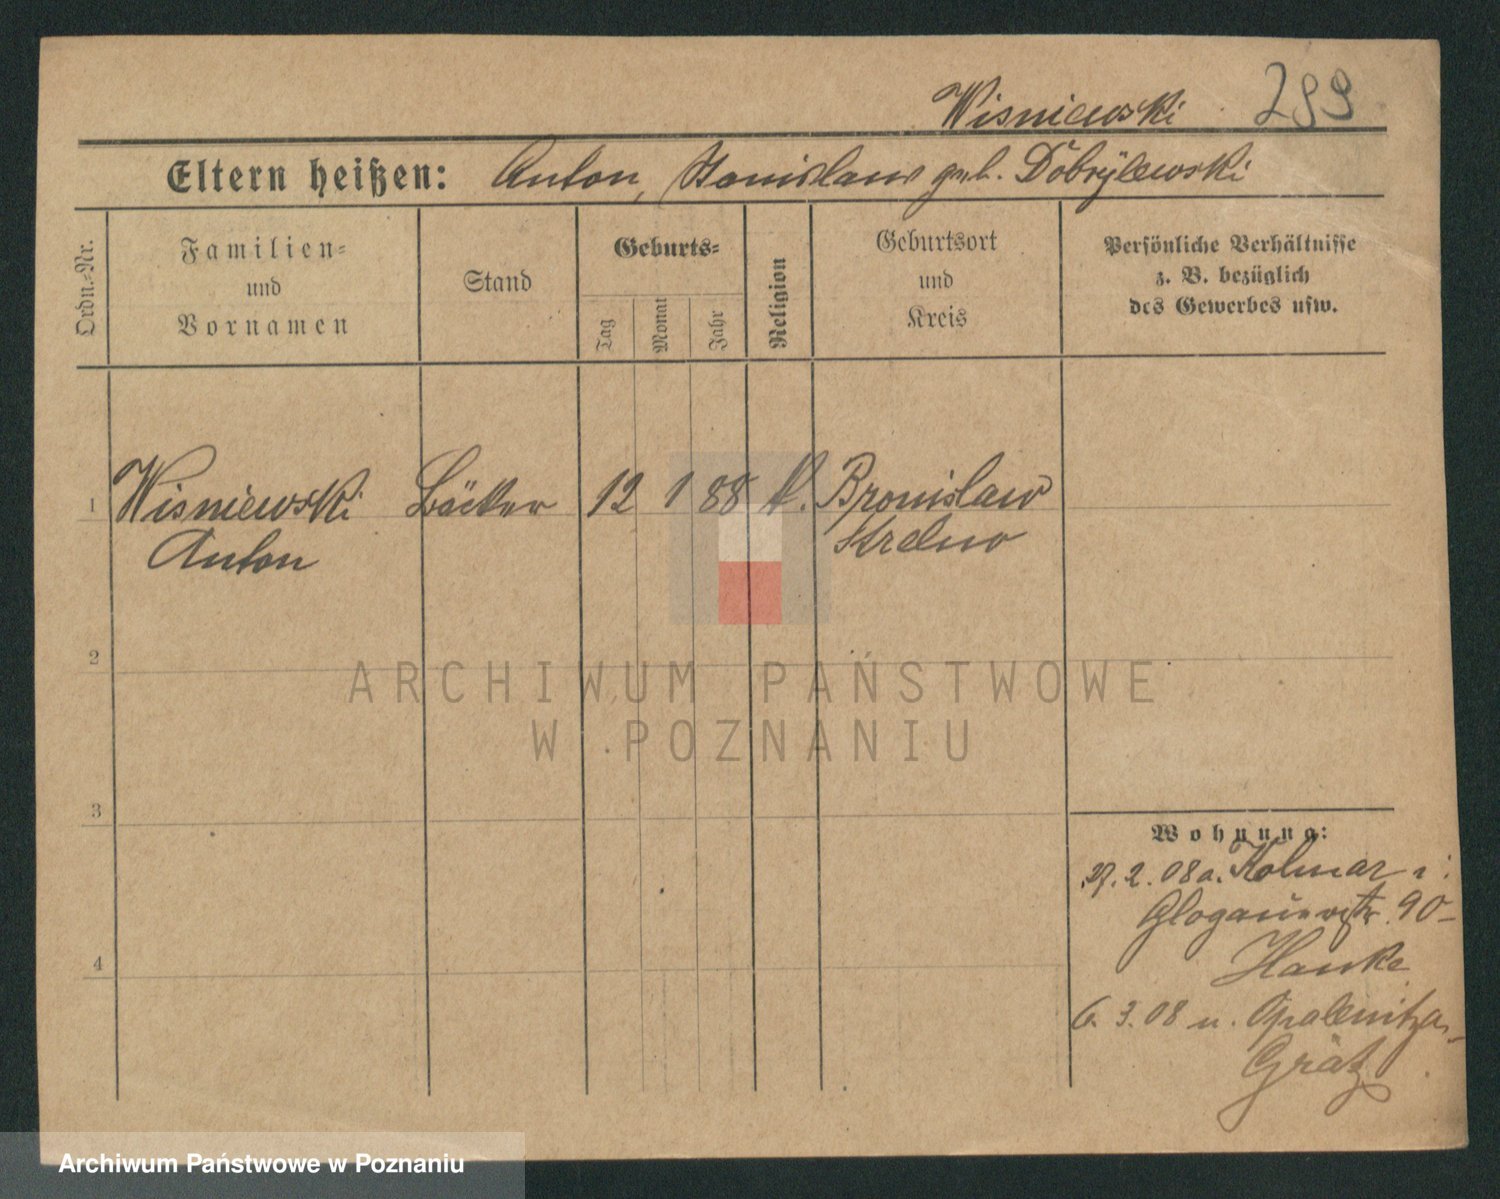 Wisniewski 299
Eltern heißen: Anton, Stanislaw geb. Dobrylewski
Ordn.-Nr.
Familien-
und
Vornamen
Stand
Geburts-
Tag
Monat
Jahr
Religion
Geburtsort
und
Kreis
Persönliche Verhältnisse
z. B. bezüglich
des Gewerbes usw.
1 Wisniewski Bäcker 12 1 88 k. Bronislaw
Anton Strelno
2
3
4
Wohnung:
27. 2. 08 a. Kolmar i.
Glogauerstr. 90
Hanke
6. 3. 08 n. Opalenitza
Grätz
ARCHIWUM PAŃSTWOWE
W POZNANIU
Archiwum Państwowe w Poznaniu